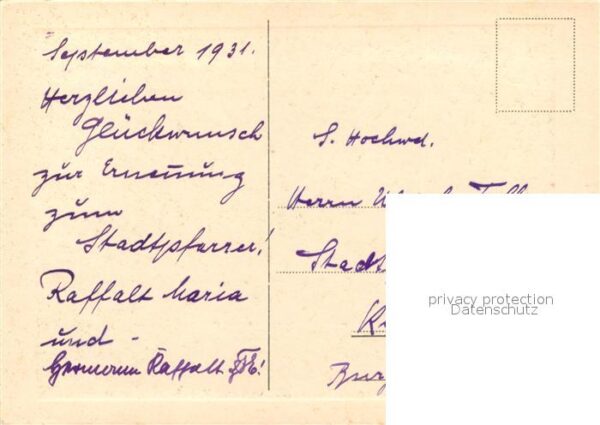 September 1931.
Herzlichen
Glückwunsch
zur Ernennung
zum
Stadtpfarrer!
Raffalt Maria
und -
Germann Raffalt
S. Hochwd.
Herrn
Stadt
privacy protection
Datenschutz
Burg